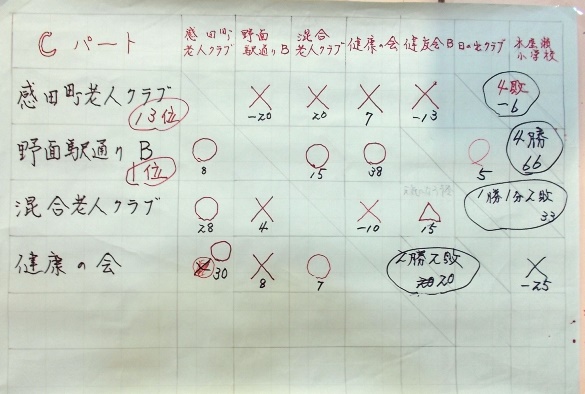 C パート 感田町老人クラブ 野面駅通りB 混合老人クラブ 健康の会 健友会B 日の出クラブ 木屋瀬小学校
感田町老人クラブ × -20 × 20 × 7 × -13 4敗 -6
13位
野面駅通りB ○ 8 ○ 15 ○ 38 ○ 5 4勝 66
1位
混合老人クラブ ○ 28 × 4 × -10 △ 15 1勝1分2敗 33
健康の会 ○ 30 × 8 ○ 7 2勝2敗 20 × -25